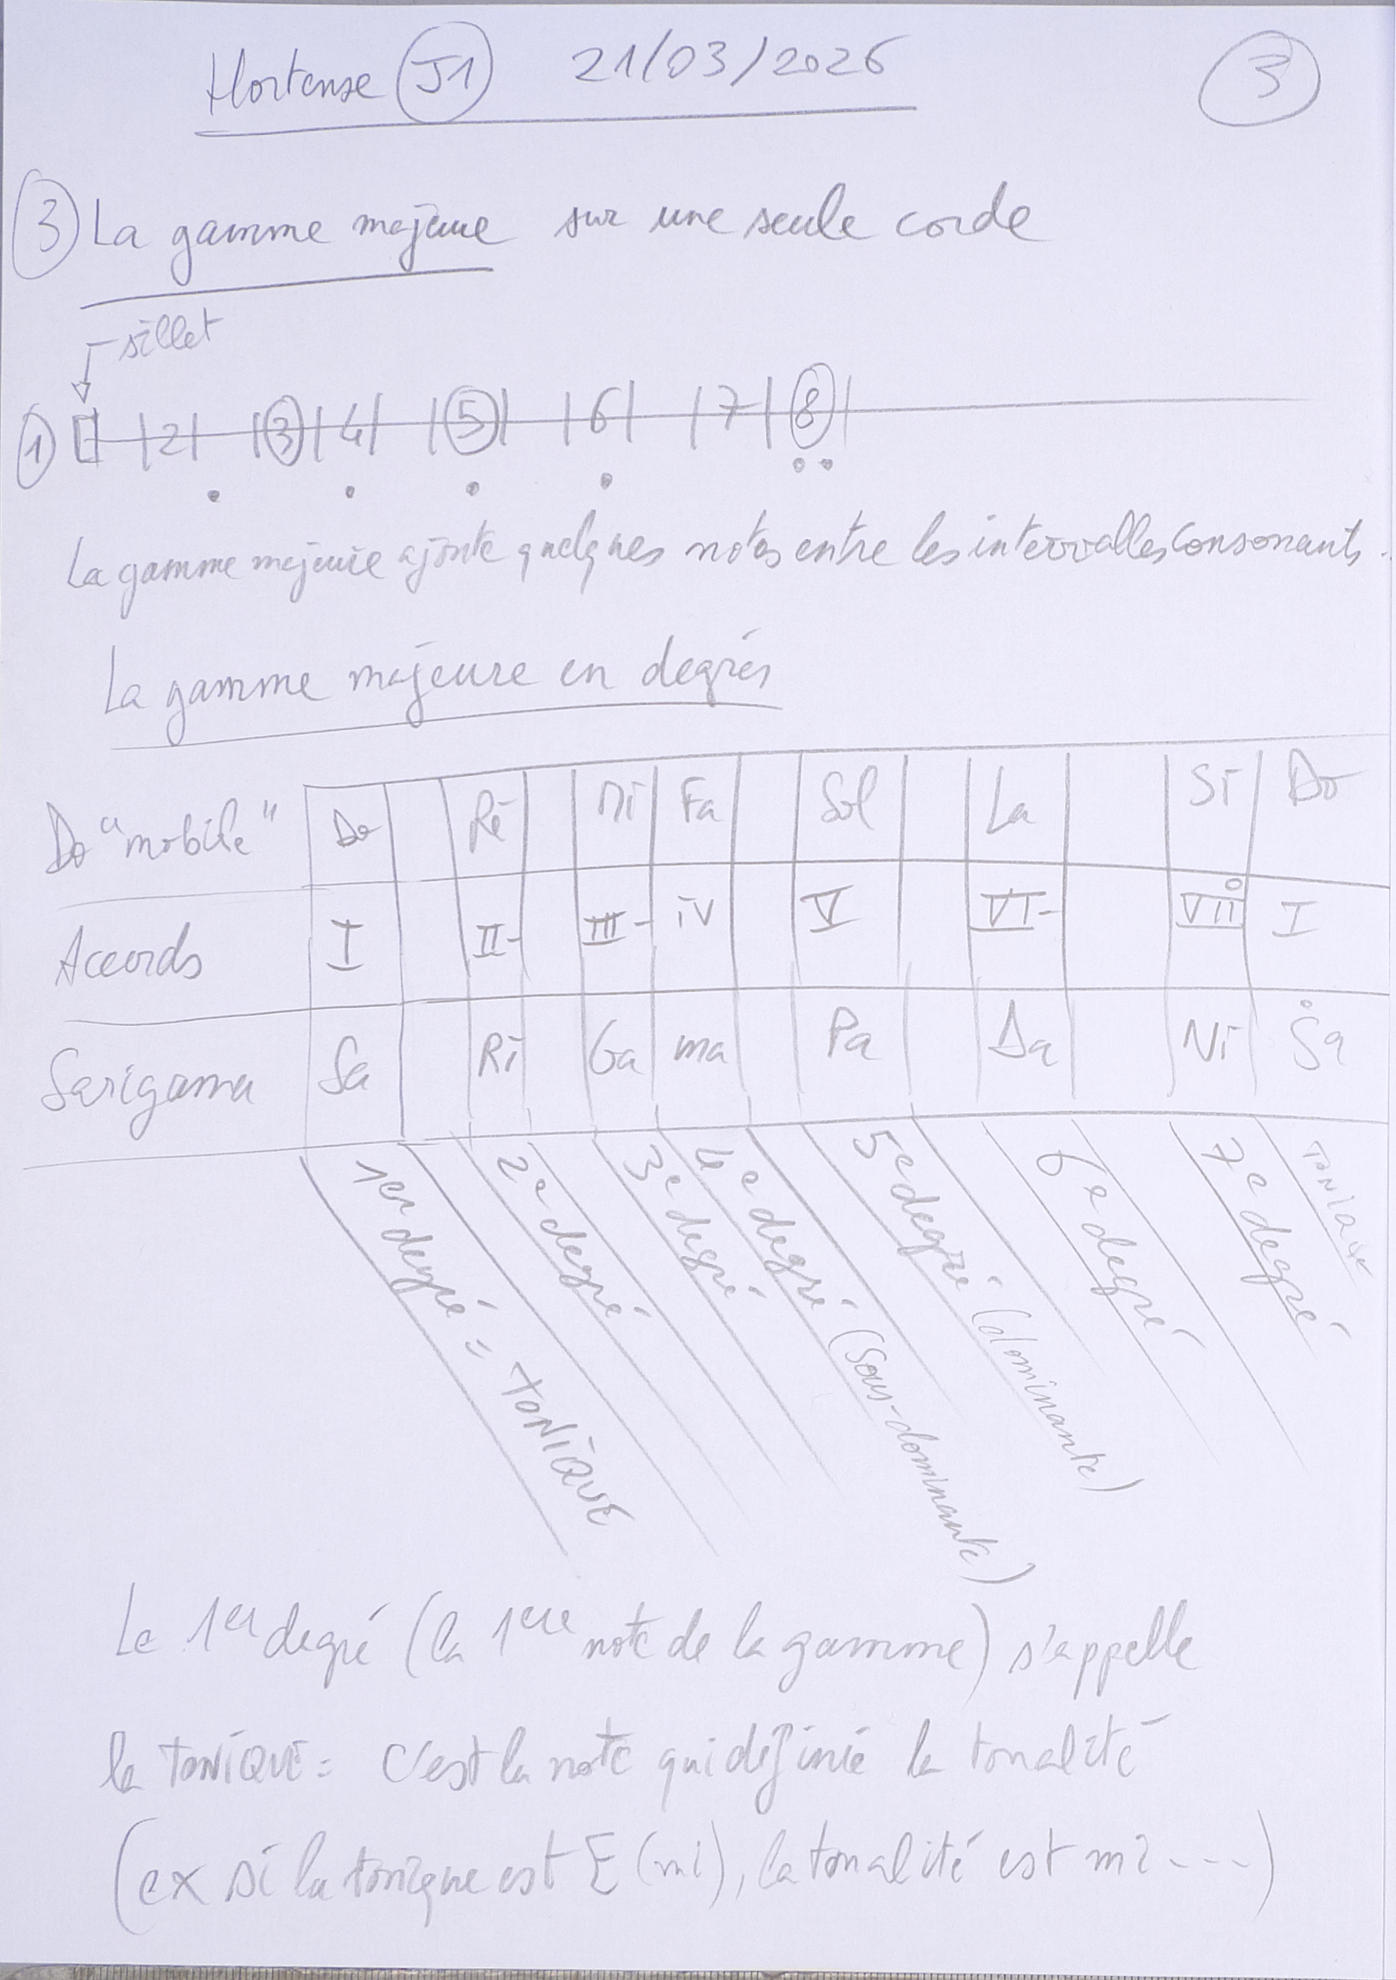 Hortense J1 21/03/2026 3
3 La gamme majeure sur une seule corde
sillet
1 2 3 4 5 6 7 8
La gamme majeure ajoute quelques notes entre les intervalles consonants.
La gamme majeure en degrés
Do "mobile" Do Ré Mi Fa Sol La Si Do
Accords I II- III- IV V VI- VII° I
Sarigama Sa Ri Ga ma Pa Da Ni Ṡa
1er degré = TONIQUE
2e degré
3e degré
4e degré (sous-dominante)
5e degré (dominante)
6e degré
7e degré
TONIQUE
Le 1er degré (la 1ère note de la gamme) s'appelle
la TONIQUE = c'est la note qui définie la tonalité
(ex si la tonique est E (mi), la tonalité est mi ----)